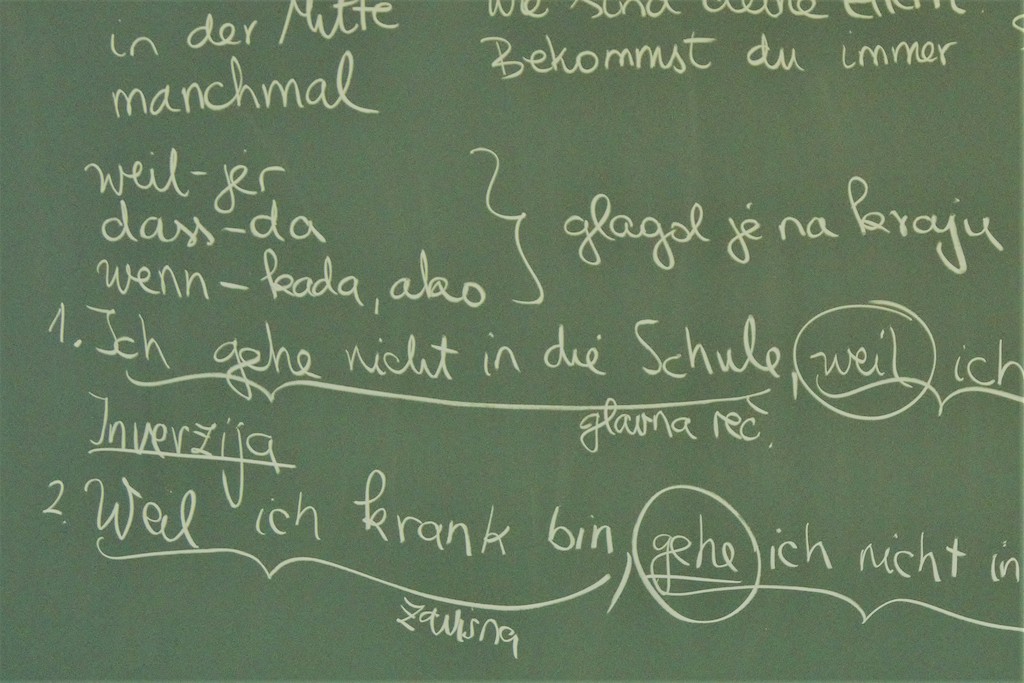 in der Mitte
manchmal
Wie sind deine Eltern
Bekommst du immer
weil - jer
dass - da
wenn - kada, ako
glagol je na kraju
1. Ich gehe nicht in die Schule, weil ich
glavna reč.
Inverzija
2. Weil ich krank bin, gehe ich nicht in
zavisna